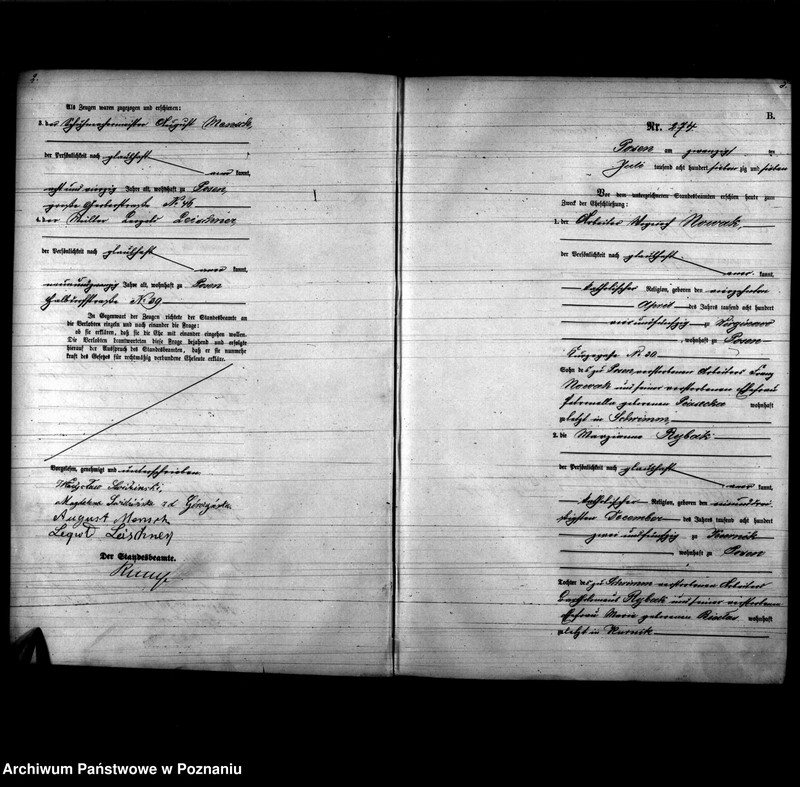 2.
Als Zeugen waren zugezogen und erschienen:
3. der Schuhmachermeister August Mensch,
der Persönlichkeit nach glaubhaft
aner kannt,
acht und vierzig Jahre alt, wohnhaft zu Posen
große Gerberstraße Nr. 46
4. der Leopold Leischner
der Persönlichkeit nach glaubhaft
aner kannt,
neunundzwanzig Jahre alt, wohnhaft zu Posen
Halbdorfstraße Nr. 29
In Gegenwart der Zeugen richtete der Standesbeamte an
die Verlobten einzeln und nach einander die Frage:
ob sie erklären, daß sie die Ehe mit einander eingehen wollen.
Die Verlobten beantworteten diese Frage bejahend und erfolgte
hierauf der Ausspruch des Standesbeamten, daß er sie nunmehr
kraft des Gesetzes für rechtmäßig verbundene Eheleute erkläre.
Vorgelesen, genehmigt und unterschrieben
Władysław
Magdalena
August Mensch
Leopold Leischner
Der Standesbeamte.
3.
B.
Nr. 274
Posen am zwanzigsten
Juli tausend acht hundert sieben zig und sieben
Vor dem unterzeichneten Standesbeamten erschien heute zum
Zweck der Eheschließung:
1. der Arbeiter Nowak,
der Persönlichkeit nach glaubhaft
aner kannt,
katholischer Religion, geboren den vierzehnten
April des Jahres tausend acht hundert
vierundfünfzig zu
, wohnhaft zu Posen
Nr. 20
Sohn des zu Posen verstorbenen Arbeiters Franz
Nowak und seiner verstorbenen Ehefrau
Petronella geborenen wohnhaft
zuletzt in Schrimm,
2. die Marzianna Rybak
der Persönlichkeit nach glaubhaft
aner kannt,
katholischer Religion, geboren den einunddrei
ßigsten December des Jahres tausend acht hundert
zwei undfünfzig zu Kurnik
, wohnhaft zu Posen
Tochter des zu Schrimm verstorbenen Arbeiters
Rybak und seiner verstorbenen
Ehefrau Marie geborenen wohnhaft
zuletzt in Kurnik
Archiwum Państwowe w Poznaniu